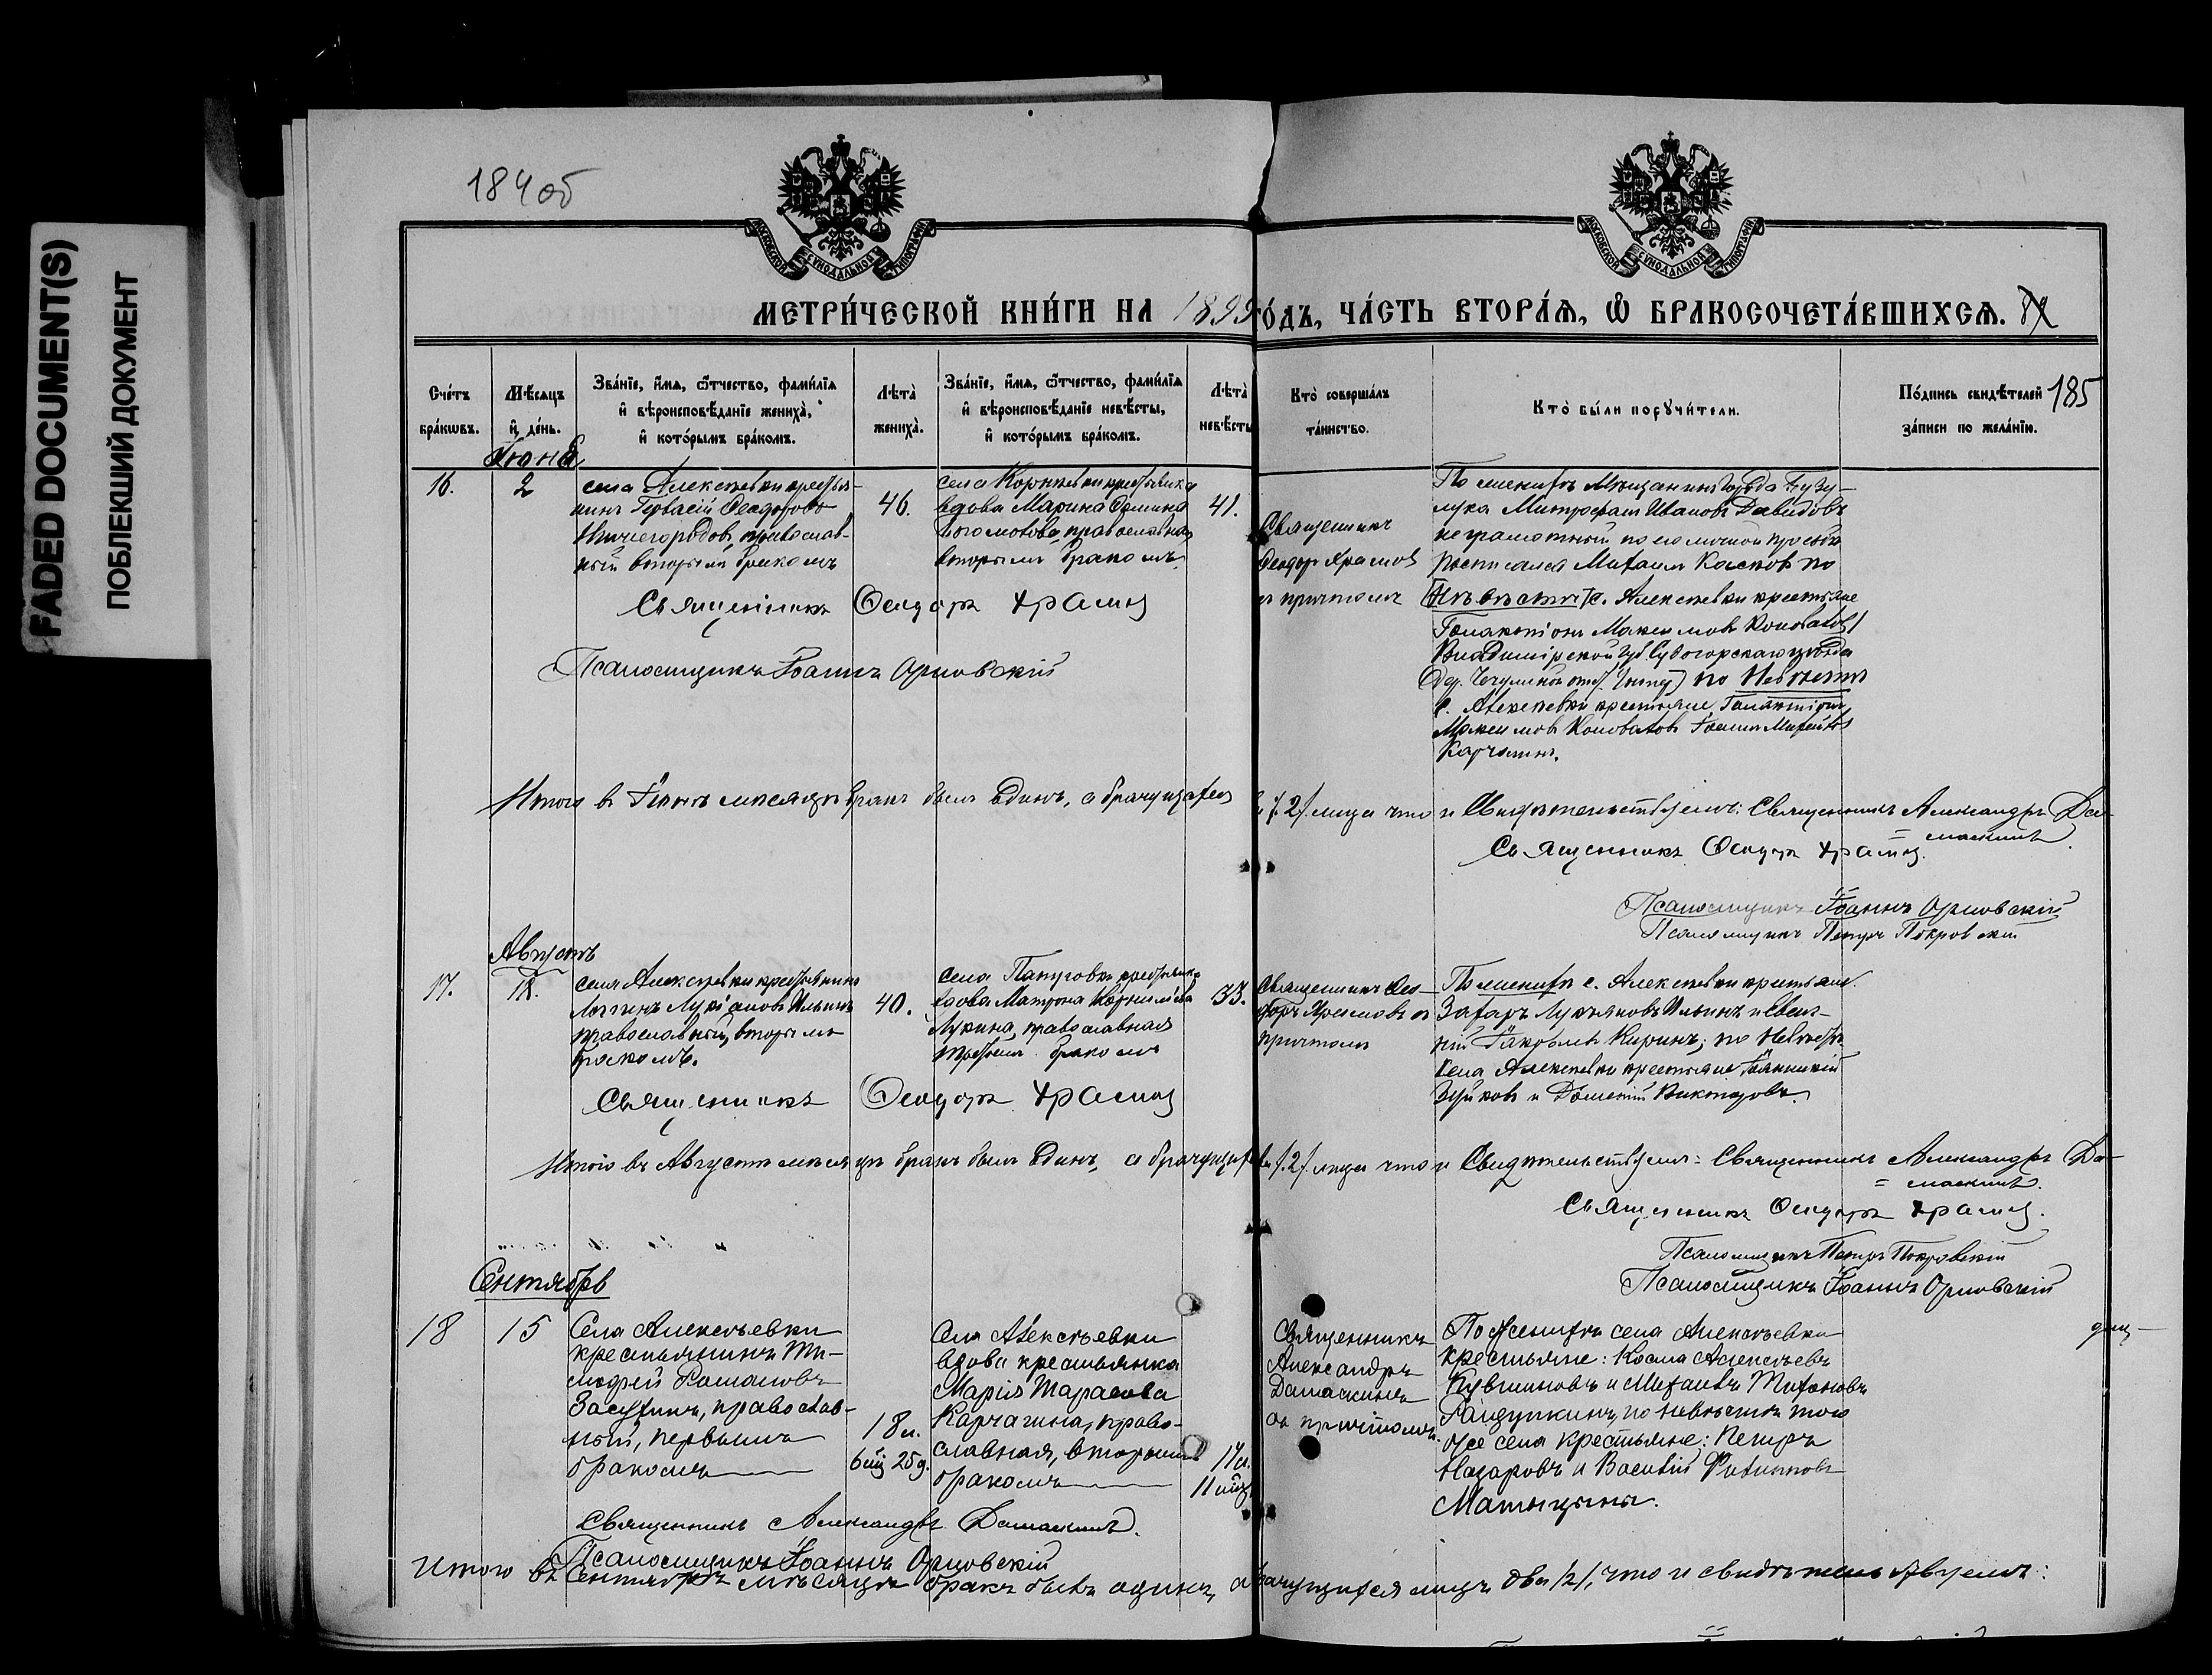 FADED DOCUMENT(S)
ПОБЛЕКШИЙ ДОКУМЕНТ
184 об
МОСКОВСКОЙ СѴНОДАЛЬНОЙ ТИПОГРАФІИ
МОСКОВСКОЙ СѴНОДАЛЬНОЙ ТИПОГРАФІИ
МЕТРИ́ЧЕСКОЙ КНИ́ГИ НА 1899 го́дъ, ЧА́СТЬ ВТОРА́Я, Ѿ БРАКОСОЧЕТА́ВШИХСЯ.
185
Сче́тъ
бра́кѡвъ.
Мѣ́сяцъ
и҆ де́нь.
Зва́нїе, и҆́мя, ѻ҆́тчество, фами́лїя
и҆ вѣроисповѣ́данїе жениха̀,
и҆ кото́рымъ бра́комъ.
Лѣта̀
жениха̀.
Зва́нїе, и҆́мя, ѻ҆́тчество, фами́лїя
и҆ вѣроисповѣ́данїе невѣ́сты,
и҆ кото́рымъ бра́комъ.
Лѣта̀
невѣ́сты
Кто̀ соверша́лъ
та́инство.
Кто̀ бы́ли порꙋчи́тели.
По́дпись свидѣ́телей
за́писи по жела́нїю.
Іюнь
16.
2
села Алексѣевки крестья-
нинъ Гервасій Ѳеодоровъ
Нижегородовъ, православ-
ный вторымъ бракомъ
46.
села Корнѣевки крестьянка
вдова Марина Ѳомина
Богомолова, православная
вторымъ бракомъ.
41.
Священникъ
Ѳеодоръ Храмовъ
съ причтомъ
По женихѣ Мѣщанинъ города Бузу-
лука Митрофанъ Ивановъ Давидовъ
неграмотный по его личной просьбѣ
росписался Михаилъ Касков по
Невѣстѣ с. Алексѣевки крестьяне
Галактіонъ Максимовъ Коноваловъ
Владимірской губ. Судогорскаго уѣзда
по Невѣстѣ
с. Алексѣевки крестьяне Галактіонъ
Максимовъ Коноваловъ Іоаннъ
Карчагинъ.
Священникъ Ѳеодоръ Храмовъ
Псаломщикъ Іоаннъ Орловскій
Итого въ Іюнѣ мѣсяцѣ бракъ былъ одинъ, а брачущихся /2/ лица что и Свидѣтельствуемъ: Священникъ Александръ Да-
= маскинъ.
Священникъ Ѳеодоръ Храмовъ.
Псаломщикъ Іоаннъ Орловскій
Псаломщикъ Петръ Покровскій
Августъ
17.
18.
села Алексѣевки крестьянинъ
Логгинъ Лукіановъ Ильинъ
православный, вторымъ
бракомъ.
40.
села Папуговки крестьянка
вдова Матрона Корнилiева
Лукина, православная
третьимъ бракомъ
33.
Священникъ Ѳео-
доръ Храмовъ съ
причтомъ
По женихѣ с. Алексѣевки крестьяне.
Захаръ Лукьяновъ Ильинъ и Евге-
ній Іаковлевъ Киринъ; по Невѣстѣ
села Алексѣевки крестьяне Іоанникій
Зуйковъ и Дометій Викторовъ.
Священникъ Ѳеодоръ Храмовъ
Итого въ Августѣ мѣсяцѣ бракъ былъ одинъ, а брачущихся /2/ лица что и Свидѣтельствуемъ: Священникъ Александръ Да-
= маскинъ.
Священникъ Ѳеодоръ Храмовъ.
Псаломщикъ Петръ Покровскій
Псаломщикъ Іоаннъ Орловскій
Сентябрь
18
15
Села Алексѣевки
крестьянинъ Ти-
мофей Романовъ
Засухинъ, православ-
ный, первымъ
бракомъ
18 л.
6 мц 25 д.
Села Алексѣевки
вдова крестьянка
Марія Тарасова
Карчагина, право-
славная, вторымъ
бракомъ
17 л.
11 мц
Священникъ
Александръ
Дамаскинъ
съ причтомъ.
По женихѣ села Алексѣевки
крестьяне: Косма Алексѣевъ
Кувшиновъ и Михаилъ Тихоновъ
по невѣстѣ того
же села крестьяне: Петръ
Назаровъ и Василій Филипповъ
Матыцины.
Священникъ Александръ Дамаскинъ.
Псаломщикъ Іоаннъ Орловскій
Итого въ Сентябрѣ мѣсяцѣ бракъ былъ одинъ, а брачущихся лицъ два /2/, что и свидѣтельствуемъ: